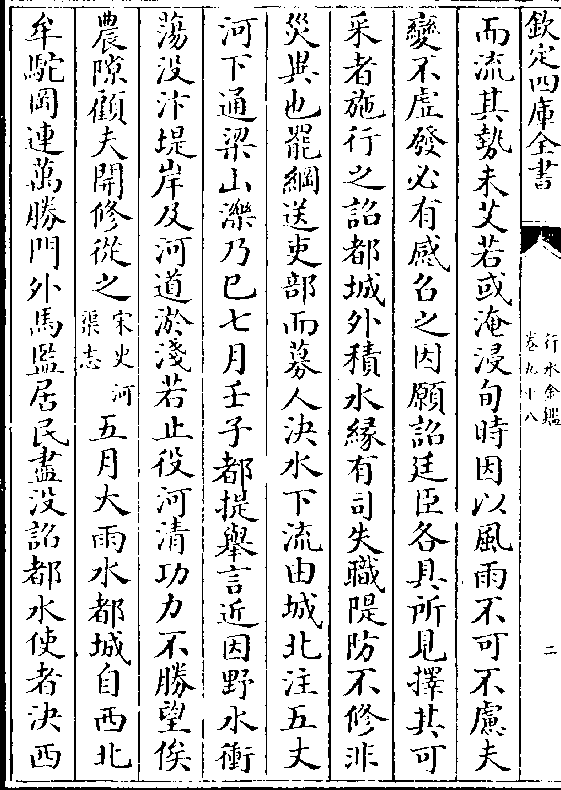 欽定四庫全書
行水金鑑
卷九十八
二
而流其勢未艾若或淹浸旬時因以風雨不可不慮夫
變不虛發必有感召之因願詔廷臣各具所見擇其可
采者施行之詔都城外積水緣有司失職隄防不修非
災異也罷綱送吏部而募人決水下流由城北注五丈
河下通梁山濼乃已七月壬子都提舉言近因野水衝
蕩没汴堤岸及河道淤淺若止役河清功力不勝望俟
農隙顧夫開修從之宋史河渠志五月大雨水都城自西北
牟駝岡連萬勝門外馬監居民盡没詔都水使者決西